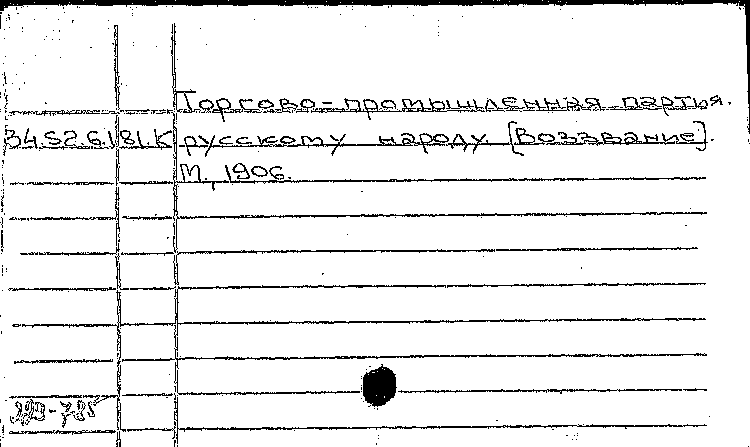 Торгово-промышленная партия.
34.52.6.1 81.К русскому народу [Воззвание].
М., 1906.